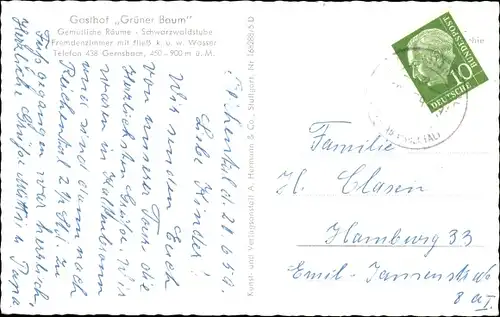 Gasthof „Grüner Baum"
Gemütliche Räume - Schwarzwaldstube
Fremdenzimmer mit fließ. k. u. w. Wasser
Telefon 438 Gernsbach, 450-900 m ü. M.
Reichental d. 20.6.59.
Liebe Kinder!
Wir senden Euch
von unserer Tour die
herzlichsten Grüße. Wir
waren in Kaltenbronn
und sind dann nach
Reichental 2½ Std. zu
Fuß gegangen, war herrlich.
Herzliche Grüße Mutti u. Papa.
Kunst- und Verlagsanstalt A. Hermann & Co. Stuttgart.
DEUTSCHE
BUNDESPOST
10
Familie
H. Clasen
Hamburg 33
Emil-Janssenstr.
8 a I.